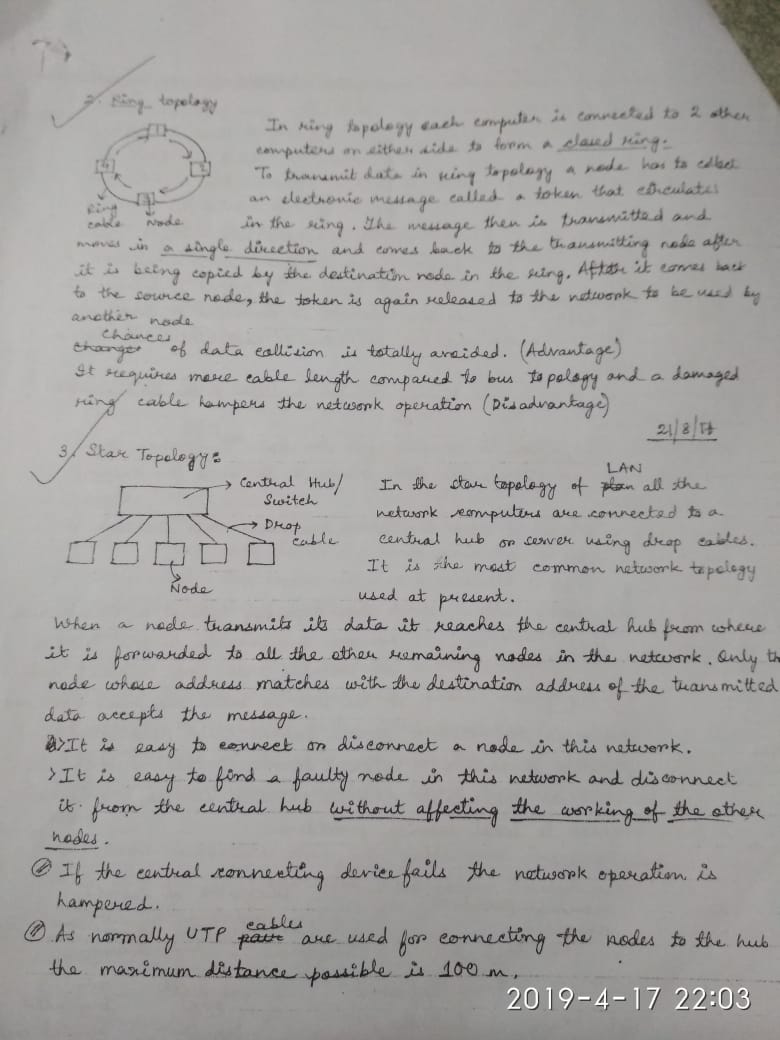 2. Ring topology
In ring topology each computer is connected to 2 other
computers on either side to form a closed ring.
To transmit data in ring topology a node has to collect
an electronic message called a token that circulates
Ring
cable Node
in the ring. The message then is transmitted and
moves in a single direction and comes back to the transmitting node after
it is being copied by the destination node in the ring. After it comes back
to the source node, the token is again released to the network to be used by
another node
Chances
changes of data collision is totally avoided. (Advantage)
It requires more cable length compared to bus topology and a damaged
ring cable hampers the network operation (Disadvantage)
21/8/17
3. Star Topology:
Central Hub/
Switch
Drop
cable
Node
LAN
In the star topology of plan all the
network computers are connected to a
central hub or server using drop cables.
It is the most common network topology
used at present.
When a node transmits its data it reaches the central hub from where
it is forwarded to all the other remaining nodes in the network. Only th
node whose address matches with the destination address of the transmitted
data accepts the message.
>It is easy to connect or disconnect a node in this network.
>It is easy to find a faulty node in this network and disconnect
it from the central hub without affecting the working of the other
nodes.
If the central connecting device fails the network operation is
hampered.
cables
As normally UTP are used for connecting the nodes to the hub
the maximum distance possible is 100 m.
2019-4-17 22:03